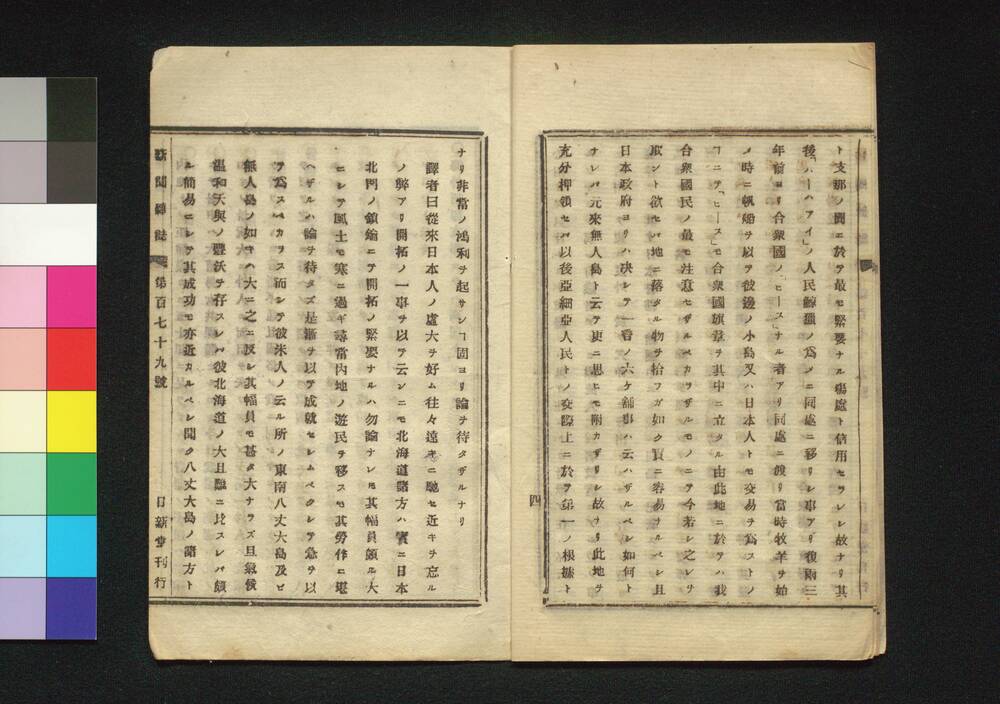 ト支那ノ間ニ於テ最モ緊要ナル場處ト信用セラレシ故ナリ其
後「ハーハアイ」ノ人民鯨獵ノ爲メニ同處ニ移リシ事アリ復兩三
年前ヨリ合衆國ノ「ヒース」ナル者アリ同處ニ渡リ當時牧羊ヲ始
メ時ニ帆船ヲ以テ彼邊ノ小島又ハ日本人トモ交易ヲ爲ストノ
ヿニテ「ヒース」モ合衆國旗章ヲ其中ニ立タル由此地ニ於テハ我
合衆國民ノ最モ注意セザルベカラザルモノニテ今若シ之レヲ
取ント欲セバ地ニ落タル物ヲ拾フガ如ク實ニ容易ナルベシ且
日本政府ヨリハ决シテ一言ノ六ケ舗事ハ云ハザルベシ如何ト
ナレバ元來無人島ト云テ更ニ思ヒモ附カザリシ故ナリ此地ヲ
充分押領セバ以後亞細亞人民トノ交際上ニ於テ第一ノ根據ト
四
ナリ非常ノ鴻利ヲ起サンヿ固ヨリ論ヲ待タザルナリ
譯者曰從來日本人ノ處大ヲ好ム往々遠キニ馳セ近キヲ忘ル
ノ弊アリ開拓ノ一事ヲ以テ云ンニモ北海道諸方ハ實ニ日本
北門ノ鎖鑰ニテ開拓ノ緊要ナルハ勿論ナレモ其幅員頗ル大
ニシテ風土モ寒ニ過ギ尋常内地ノ遊民ヲ移スモ其勞作ニ堪
ヘザルハ論ヲ待タズ是漸ヲ以テ成就セシムベクシテ急ヲ以
テ爲スベカラス而シテ彼米人ノ云ル所ノ東南八丈大島及ビ
無人島ノ如キハ大ニ之ニ反シ其幅員モ甚タ大ナラズ且氣候
溫和天與ノ豐沃ヲ存スレバ彼北海道ノ大且難ニ比スレバ頗
ル簡易ニシテ其成功モ亦近カルベシ聞ク八丈大島ノ諸方ト
新聞雜誌 第百七十九號 日新堂刊行